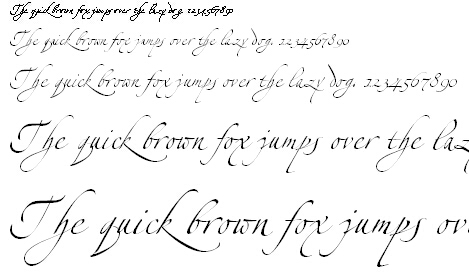 The quick brown fox jumps over the lazy dog. 1234567890
The quick brown fox jumps over the lazy dog. 1234567890
The quick brown fox jumps over the lazy dog. 1234567890
The quick brown fox jumps over the laz
The quick brown fox jumps ov